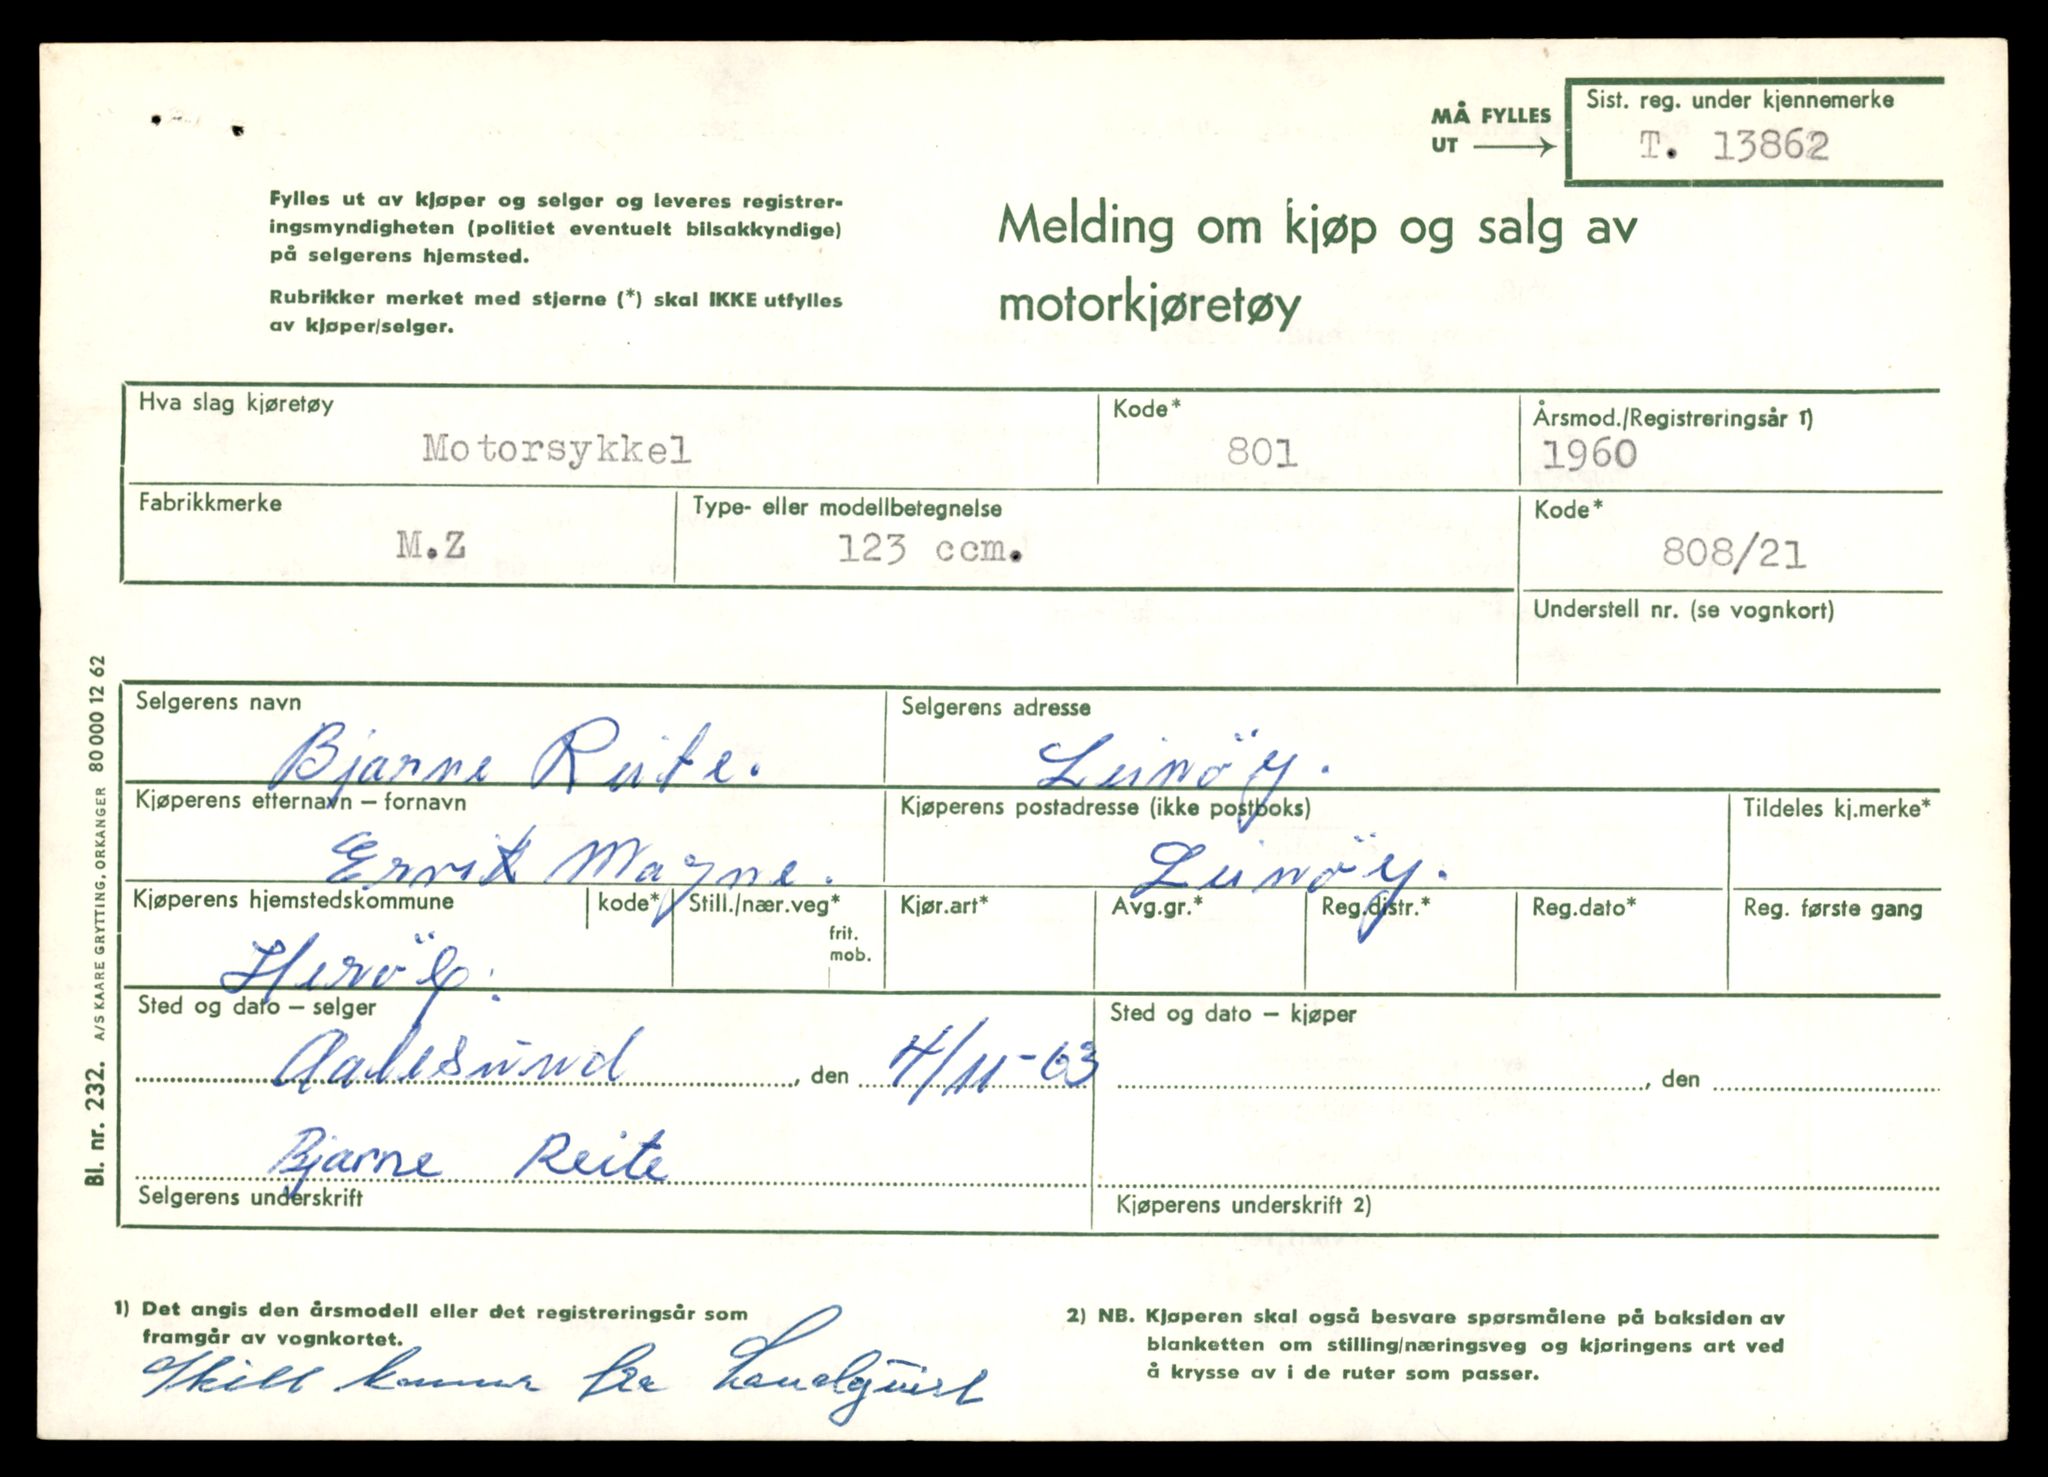 MÅ FYLLES
UT
Sist. reg. under kjennemerke
T. 13862
Fylles ut av kjøper og selger og leveres registrer-
ingsmyndigheten (politiet eventuelt bilsakkyndige)
på selgerens hjemsted.
Rubrikker merket med stjerne (*) skal IKKE utfylles
av kjøper/selger.
Melding om kjøp og salg av
motorkjøretøy
Hva slag kjøretøy
Motorsykkel
Kode*
801
Årsmod./Registreringsår 1)
1960
Fabrikkmerke
M.Z
Type- eller modellbetegnelse
123 ccm.
Kode*
808/21
Understell nr. (se vognkort)
Selgerens navn
Bjarne Reite.
Selgerens adresse
Leinöy.
Kjøperens etternavn – fornavn
Ervik Magne.
Kjøperens postadresse (ikke postboks)
Leinöy.
Tildeles kj.merke*
Kjøperens hjemstedskommune
Heröy.
kode*
Still./nær.veg*
frit.
mob.
Kjør.art*
Avg.gr.*
Reg.distr.*
Reg.dato*
Reg. første gang
Sted og dato – selger
Aalesund, den 4/11-63
Bjarne Reite
Selgerens underskrift
Sted og dato – kjøper
, den
Kjøperens underskrift 2)
1) Det angis den årsmodell eller det registreringsår som
framgår av vognkortet.
Skill kommer fra
2) NB. Kjøperen skal også besvare spørsmålene på baksiden av
blanketten om stilling/næringsveg og kjøringens art ved
å krysse av i de ruter som passer.
Bl. nr. 232. A/S KAARE GRYTTING, ORKANGER 80 000 12 62